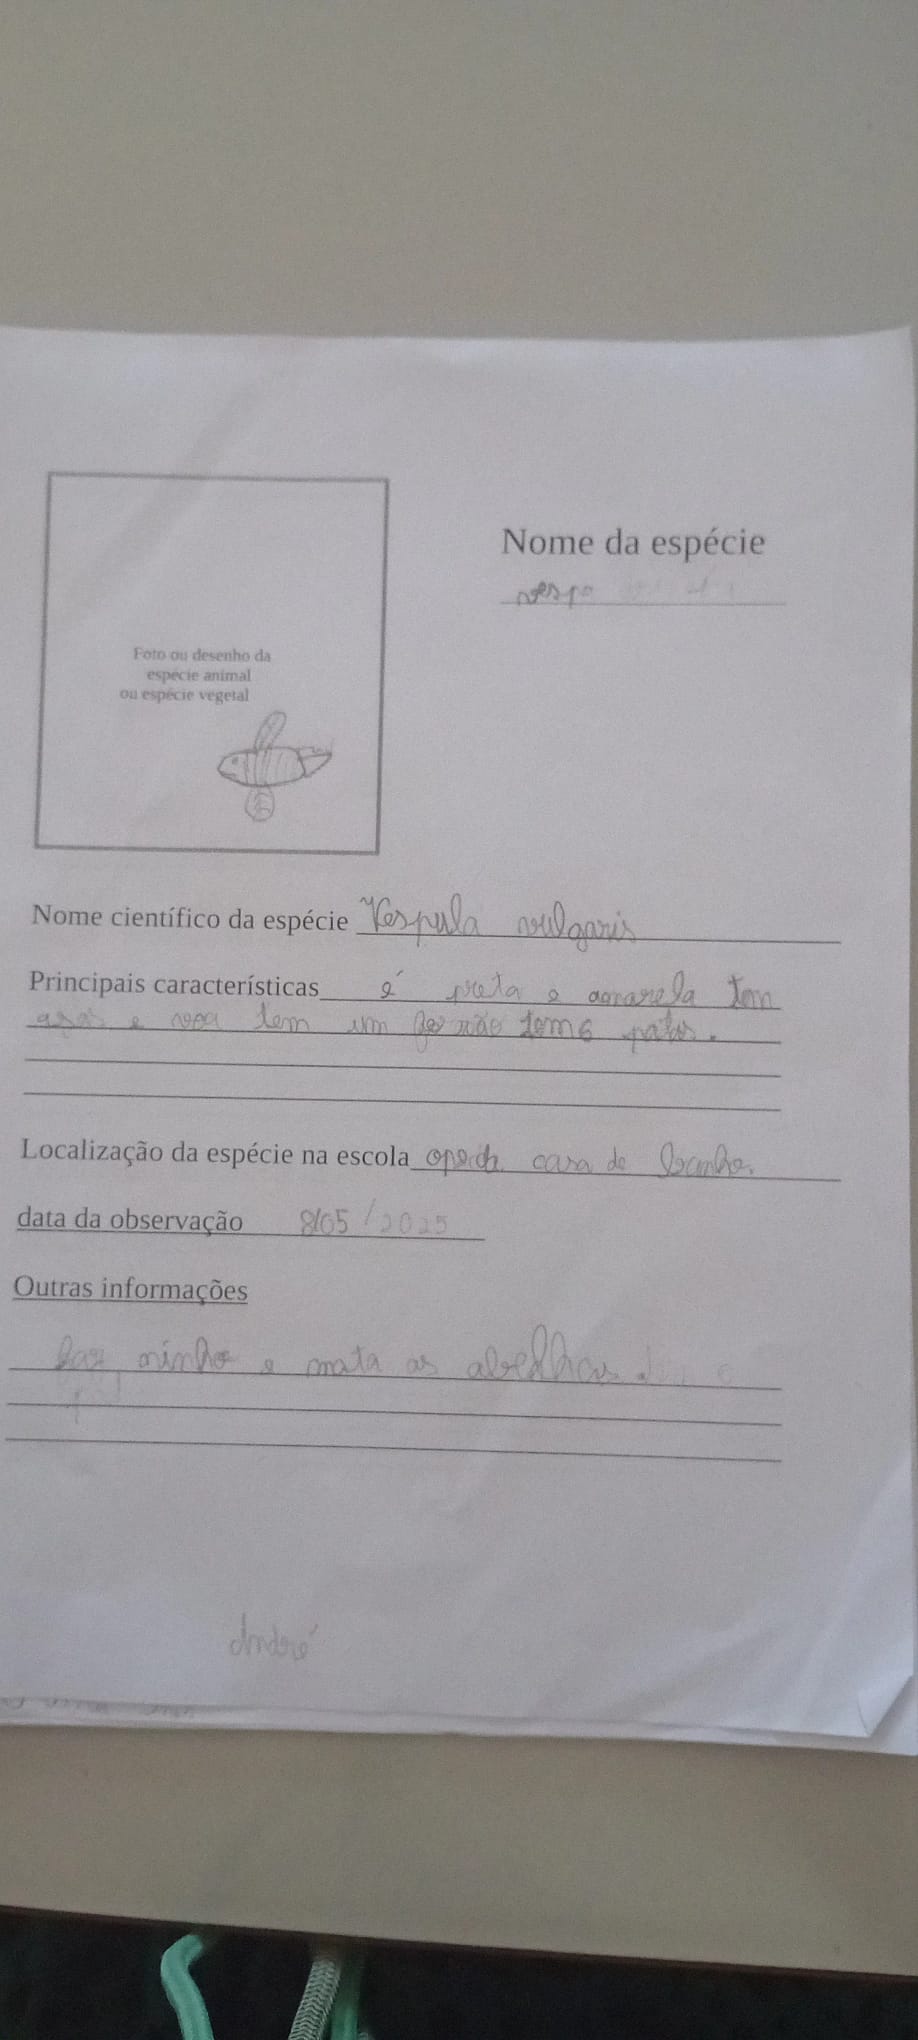 Nome da espécie
vespa
Foto ou desenho da
espécie animal
ou espécie vegetal
Nome científico da espécie Vespula vulgaris
Principais características é preta e amarela tem
asas e voa tem um tem 6 patas.
Localização da espécie na escola casa de banho.
data da observação 8/05/2025
Outras informações
Faz ninho e mata as abelhas
André